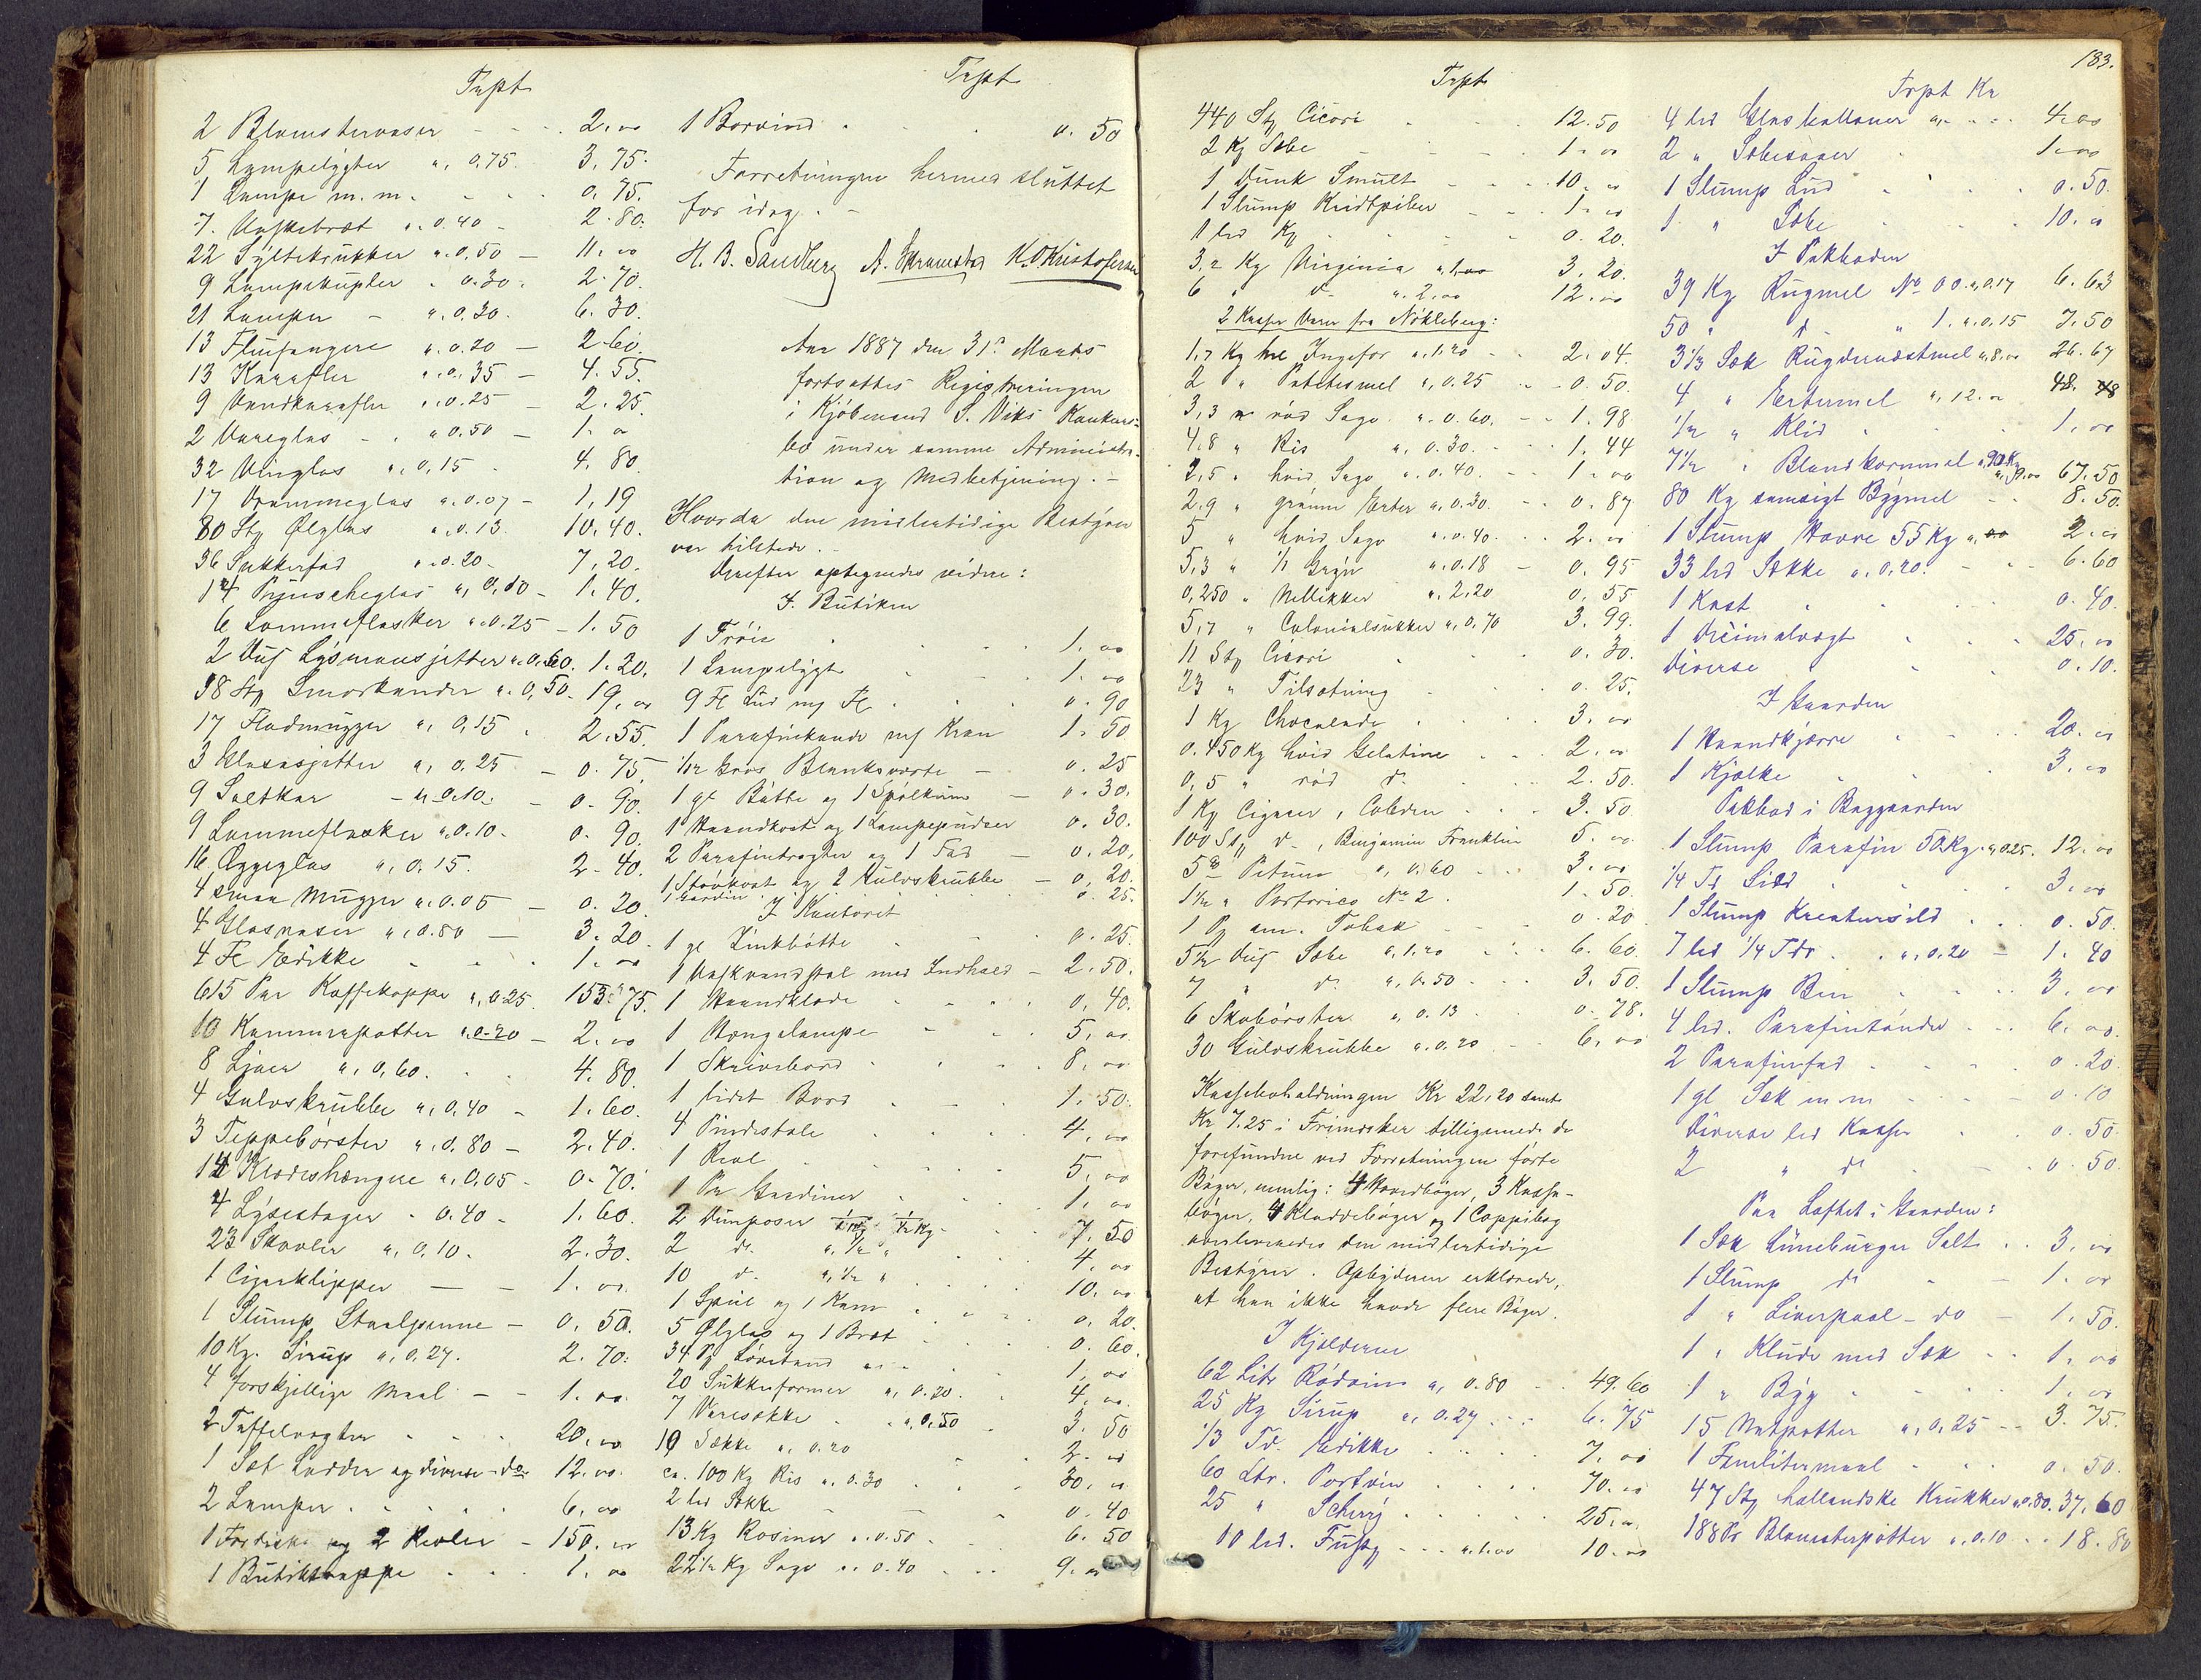 Trpt
2 Blomstervaser - - - 2. 00
5 Lampelygter a, 0,75. 3. 75.
1 Lampe m. m. - - - 0. 75.
7. Vaskebræt a. 0.40 - 2. 80.
22 Syltekrukker a. 0,50 - 11. 00
9 Lampekupler - 0.30. 2. 70.
21 Lamper - a. 0.30. 6. 30.
13 Fluefangere a. 0.20 - 2. 60.
13 Karafler a. 0. 35 - 4. 55.
9 Vandkarafler a. 0.25 - 2. 25.
2 Vareglas - . a 0.50 - 1. 00
32 Vinglas a. 0,15 - 4. 80
17 Drammeglas a. 0.07 - 1, 19
80 Stk Ølglas a. 0.13. 10. 40.
36 Sukkerfad a. 0.20. 7, 20.
14 Pynscheglas a, 0,10 - 1. 40.
6 Lommeflasker a. 0.25 - 1. 50
2 Dus Lysmansjetter a. 0,60. 1. 20.
38 Stk Smørkander a. 0,50 - 19, 00
17 Flødmugger a, 0,15 . 2. 55.
3 Glasasjetter a, 0.25 - 0. 75.
9 Saltkar - a. 0.10. - 0. 90.
9 Lommeflasker a. 0.10 - 0. 90.
16 Æggeglas a, 0,15. 2. 40.
4 smaa Mugger a. 0.05 - 0. 20
4 Glasvaser a, 0.80 - 3. 20.
4 Fl Edikke . . . 1. 00
615 Par Kaffekoppe a, 0.25. 153. 75.
10 Kammerpotter a. 0-20 - 2. 00
8 Ljaer a, 0,60. . . 4. 80.
4 Gulvskrubbe a, 0,40 - 1. 60.
3 Teppebørster a, 0,80 - 2. 40.
14 Klædeshengere a, 0,05 - 0. 70.
4 Lysestager - 0.40 - 1. 60.
23 Skovler a, 0,10. - 2. 30.
1 Cigarklipper - - 1. 00.
1 Slump Staalpenne - 0. 50.
10 Kg. Sirup a, 0,27. 2. 70.
4 forskjellige Maal - - 1. 00.
2 Taffelvægter - - - 20, 00
1 Sæt Lodder og diverse do 12. 00.
2 Lamper . . . . 6, 00
1 Fordiske og 2 Reoler - 150. 00
1 Butiktrappe . . . 1, 00
Trpt
1 Bordvind . . . 0. 50
Forretningen hermed sluttet
for idag. -
H. B. Sandberg A. Skramstad K. O Kristofersen
Aar 1887 den 31te Marts
fortsattes Registreringen
i Kjøbmand S. Viks Konkurs-
bo under samme Administra-
tion og Medbetjening. -
Hvorda den midlertidige Bestyrer
var tilstede. -
Derefter optegnedes videre:
I. Butiken
1 Trøie . . . 1. 00
1 Lampelygt . . . 1. 00
9 Fl Lud m/ Fl . . . 0. 90
1 Parafinkande m/ Kran 1. 50
1/12 Gros Blanksværte - 0. 25
1 gl Bøtte og 1 Spølkum - 0. 30.
1 Haandkost og 1 Lampepudser 0. 30.
2 Parafintragter og 1 Fad - 0. 20.
1 Støvkost og 2 Gulvskrubbe - 0. 20.
1 Gardin . . . 0. 25.
I Kontoret
1 gl Zinkbøtte . . . 0. 25.
1 Vaskvandstol med Indhold - 2. 50.
1 Haandklæde . . . 0, 40.
1 Hængelampe . . . 5, 00
1 Skrivebord . . . 8, 00
1 lidet Bord . . . 1. 50.
4 Pindestole . . . 4, 00
1 Reol . . . 5, 00
1 Par Gardiner . . . 1, 00
2 Dunposer 1/2 Kg. 7. 50
2 do. a, 1/2 " 4, 00
10 do. a, 1/2 " 10, 00
1 Speil og 1 Kam . . 0, 20.
5 Ølglas og 1 Bræt . . 0. 60.
34 Pk Løvetand . . 1, 00
20 Sukkerformer a, 0.20. . 4, 00.
7 Varesække . . a, 0,50 3. 50
10 Sække a, 0.20 2. 00
ca. 100 Kg Ris a. 0.30 . . 30, 00
2 led Sække - 0. 40
13 Kg Rosiner a. 0.50 . . 6. 50
22 1/2 Kg Sago a. 0.40 . . 9. 00
183.
Trpt
440 Stk Cicori . . 12. 50
2 Kg Sæbe - - - 1. 00
1 Dunk Smult - - - 10. 00
1 Slump Kridtpiber - - 1. 00
1 led Kg . . . 0. 20.
3,2 Kg Virginia a. 1,00 3. 20.
6 " do - a. 2.00 12. 00
2 Kasser Varer fra Nøkleberg:
1,7 Kg hel Ingefær a, 1,20 - - 2. 04.
2 " Potetesmel a, 0.25 - - 0. 50.
3,3 " rød Sago a. 0.60. - - 1. 98
4.8 " Ris a, 0.30. - - 1. 44
2,5 " hvid Sago a. 0.40. - 1. 00
2.9 " grønne Erter a, 0.30. - 0. 87
5 " hvid Sago a. 0.40. - - 2. 00
5,3 " 1/1 Gryn a. 0.18 - 0. 95
0,250 " Nellikker a. 2,20 0, 55
5,7 " Colonialsukker a, 0,70 3. 99.
11 Stk Cicori . . 0. 30.
23 " Tilsætning . . 0. 25.
1 Kg Chocolade . . . 3. 00
0.450 Kg hvid Gelatine . . 2. 00
0,5 " rød do. . . 2. 50.
1 Kg Cigarer, Cobden . . 3. 50
100 Stk do -, Benjamin Franklin 5. 00
5 Petum a, 0,60 - - 3. 00
1 1/2 " Portorico No 2. . 1. 50.
1 Pk am. Tobak - - - 0. 20
5 1/2 Dus Sæbe a, 1.20 . . 6. 60.
7 " do. a, 0.50 . . . 3. 50.
6 Skobørster a, 0.13 . 0. 78.
30 Gulvskrubbe a. 0.20 . . 6. 00
Kassebeholdningen Kr 22,20 samt
Kr 7.25 i Frimærker tilligemed de
forefundne ved Forretningen førte
Bøger, nemlig: 4 Hovedbøger, 3 Kasse-
bøger, 4 Kladdebøger og 1 Coppibog
overleveredes den midlertidige
Bestyrer. Opbyderen erklærede,
at han ikke havde flere Bøger.
I Kjælderen
62 Litr Rødvin a, 0.80 - - 49. 60
25 Kg Sirup a, 0.27 . . . 6. 75
1/3 Td. Edikke . . . . 7, 00
60 Ltr. Portvin . . . . 70. 00
25 " Scherry . . . . 25. 00
10 led. Fustg - - - a. 1.00 10. 00
Trpt Kr
4 led Glasballoner a, - - - 4. 00
2 " Sæbesaaer . 1. 00
1 Slump Lud . . . . 0. 50.
1. " Sæbe . . . 10. 00
I Pakboden
39 Kg Rugmel No 00. a, 0.17 6. 63
50 " do - " 1. a. 0.15 7. 50
3 1/3 Sæk Rugdernæstmel a, 8,00 26. 67
4 " Ertermel a, 12.00 48.
1/2 " Klid . . . . 1. 00
7 1/2 " Blandkornmel a, 90 Kg a, 9.00 67. 50
80 Kg samsigt Bygmel - - 8. 50.
1 Slump Havre 55 Kg a, 2. 00
33 led Sække a, 0,20. - - - 6. 60
1 Kost . . . . 0. 40.
1 Decimalvægt . . . 25. 00
Diverse . . . 0. 10.
I Gaarden
1 Haandkjærre . . . 20. 00
1 Kjælke . . . 3, 00
Pakbod i Baggaarden
1 Slump Parafin 50 Kg. a, 0.25. 12. 00
1/4 Td Sild . . . . 3, 00
1 Slump Kreatursild . . 0. 50.
7 led 1/4 Tdr . . a, 0,20 - 1. 40
1 Slump Ben . . . 3. 00
4 led. Parafintønder . . . 6, 00
2 Parafinfad . . . 0. 20.
1 gl Sæk m m . . . 0. 10
Diverse led Kasser . . 0. 50.
2 " do . . . 0. 50.
Paa Loftet i Gaarden:
1 Sæk Lüneburger Salt . . 3. 00
1 Slump do - - 1. 00
1 " Liverpool - do - 1. 50.
1 " Klude med Sæk . . 1. 00
1 " Byg . . . . 1. 00
15 Natpotter a, 0,25 - - 3. 75.
1 Familiemaal . . . 0. 50.
47 Stk hollandske Krukker a, 0.80. 37. 60
188 Pr Blomsterpotter a, 0.10 . . 18. 80